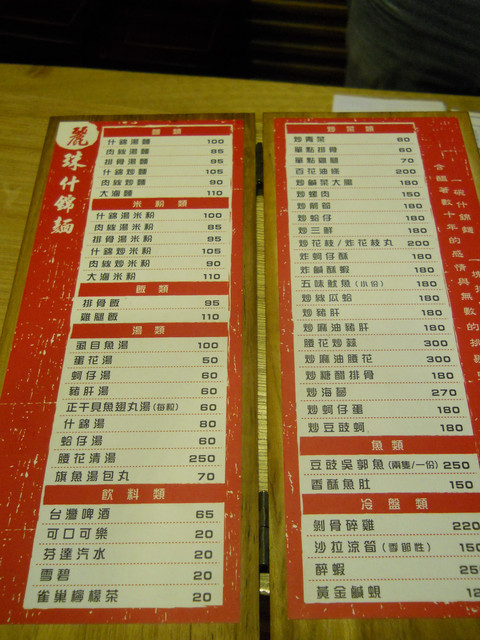 麗珠什錦麵
麵類
什錦湯麵 100
肉絲湯麵 85
排骨湯麵 95
什錦炒麵 105
肉絲炒麵 90
大滷麵 110
米粉類
什錦湯米粉 100
肉絲湯米粉 85
排骨湯米粉 95
什錦炒米粉 105
肉絲炒米粉 90
大滷米粉 110
飯類
排骨飯 95
雞腿飯 110
湯類
虱目魚湯 100
蛋花湯 50
蚵仔湯 60
豬肝湯 60
正干貝魚翅丸湯(每粒) 60
什錦湯 80
蛤仔湯 60
腰花清湯 250
旗魚湯包丸 70
飲料類
台灣啤酒 65
可口可樂 20
芬達汽水 20
雪碧 20
雀巢檸檬茶 20
炒菜類
炒青菜 60
單點排骨 60
單點雞腿 70
百花油條 200
炒鹹菜大腸 180
炒螺肉 150
炒箭筍 180
炒蛤仔 180
炒三鮮 180
炒花枝/炸花枝丸 200
炸蚵仔酥 180
炸鹹酥蝦 180
五味魷魚(小份) 180
炒絲瓜蛤 180
炒豬肝 180
炒麻油豬肝 180
腰花炒蒜 300
炒麻油腰花 300
炒糖醋排骨 180
炒海蔘 270
炒蚵仔蛋 180
炒豆豉蚵 180
魚類
豆豉吳郭魚(兩隻/一份) 250
香酥魚肚 150
冷盤類
剝骨碎雞 220
沙拉涼筍(季節性) 150
醉蝦 25
黃金鹹蜆 12
一碗什錦麵
含蘊著數十年的感情與無數的
一塊